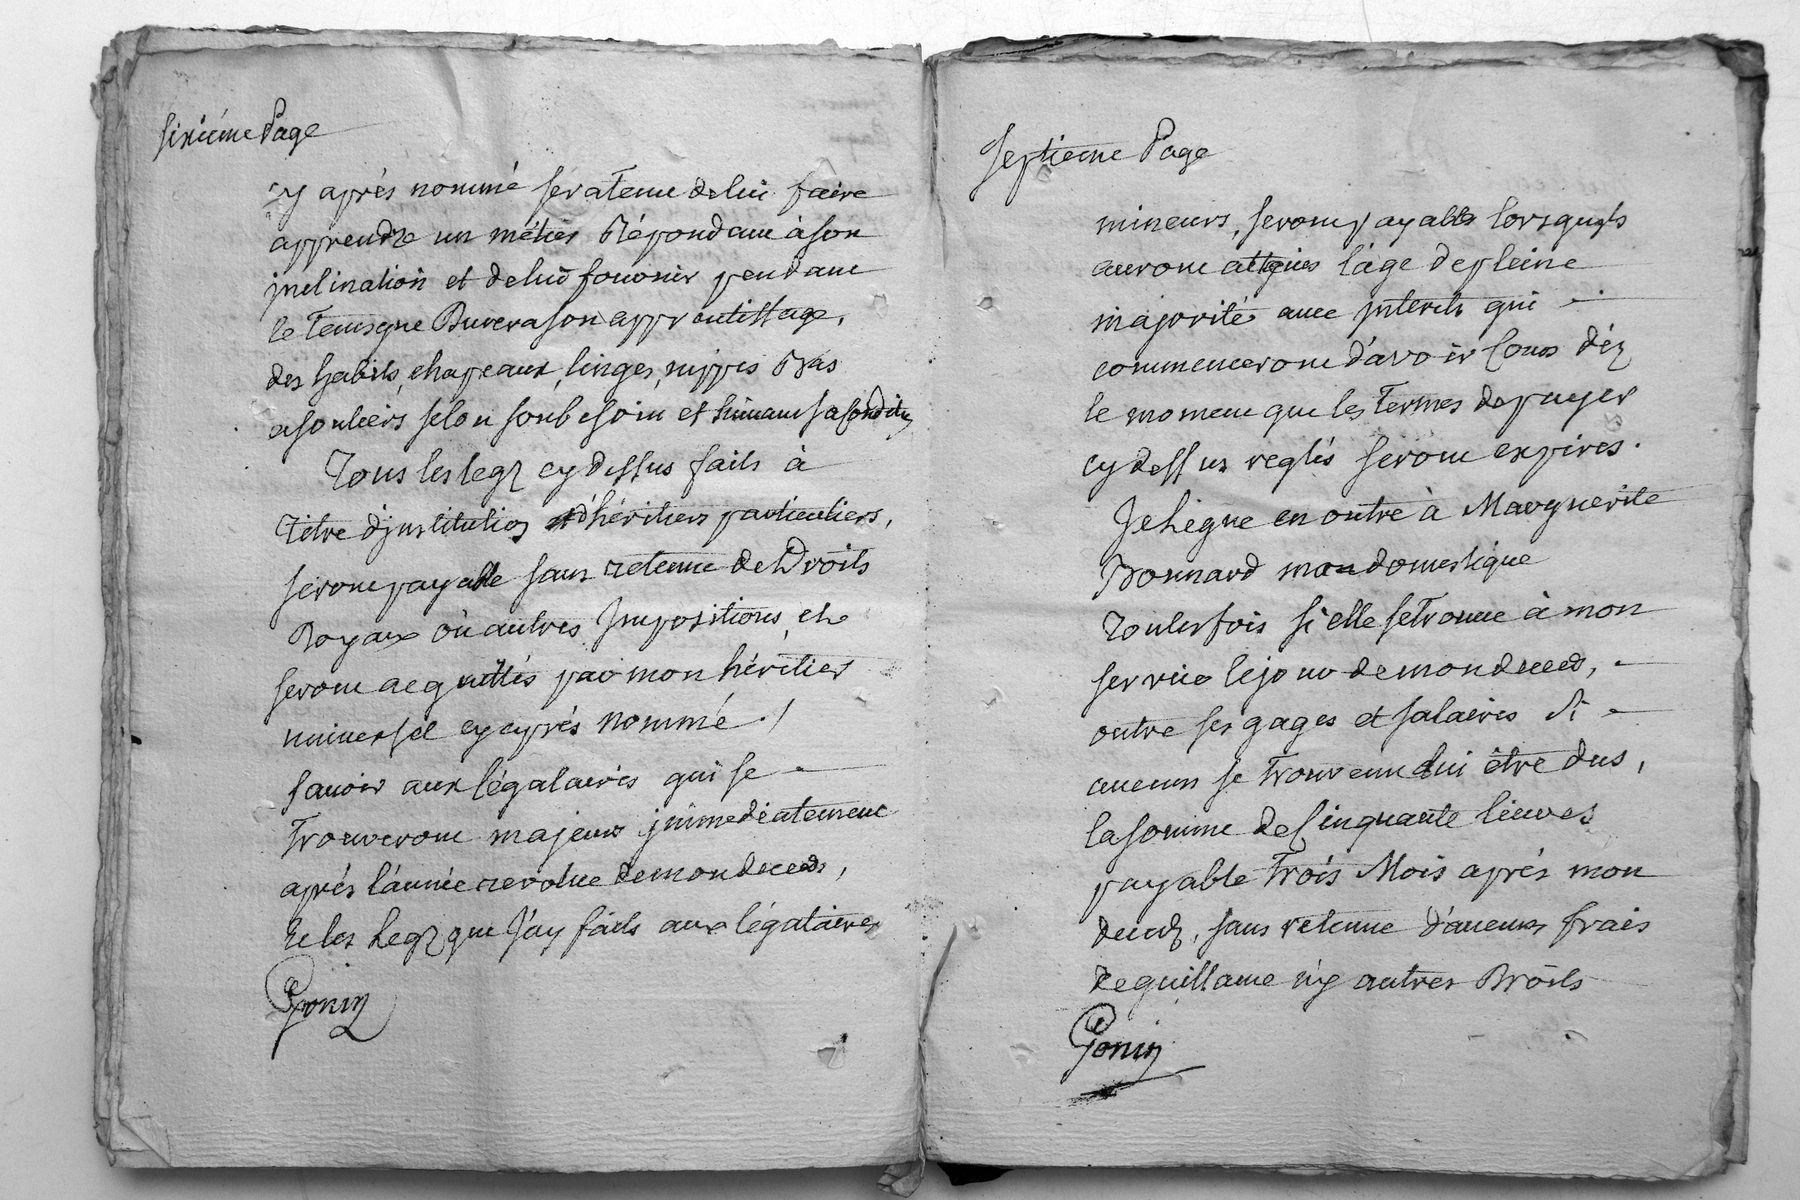 sixiéme Page
cy aprés nommé sera tenu de lui faire
apprendre un métier Répondant à son
inclination et de lui fournir pendant
le tems que Durera son apprentissage,
des habits, chapeaux, linges, nippes Bas
et souliers selon son besoin et suivant sa condition
Tous les legz cy dessus faits à
titre d'institution d'héritiers particuliers,
seront payable sans retenue de Droits
Royaux ou autres Impositions, et
seront acquittés par mon héritier
universel cy aprés nommé /
savoir aux légataires qui se
trouveront majeurs immediatement
aprés l'année revolue de mon deceds,
et les Legz que j'ay faits aux légataires
Gonin
Septieme Page
mineurs, seront payable lorsquils
auront atteints l'áge de pleine
majorité avec interets qui
commenceront d'avoir Cours déz
le moment que les termes de payer
cy dessus reglés seront expirés.
Je Légue en outre à Marguerite
Bonnard ma domestique
toutesfois si elle se trouve à mon
service le jour de mon deceds,
outre ses gages et salaires si
aucuns se trouvent lui être dus,
la somme de Cinquante livres
payable trois Mois aprés mon
decedz, sans retenue d'aucuns frais
de quittance ny autres Droits
Gonin